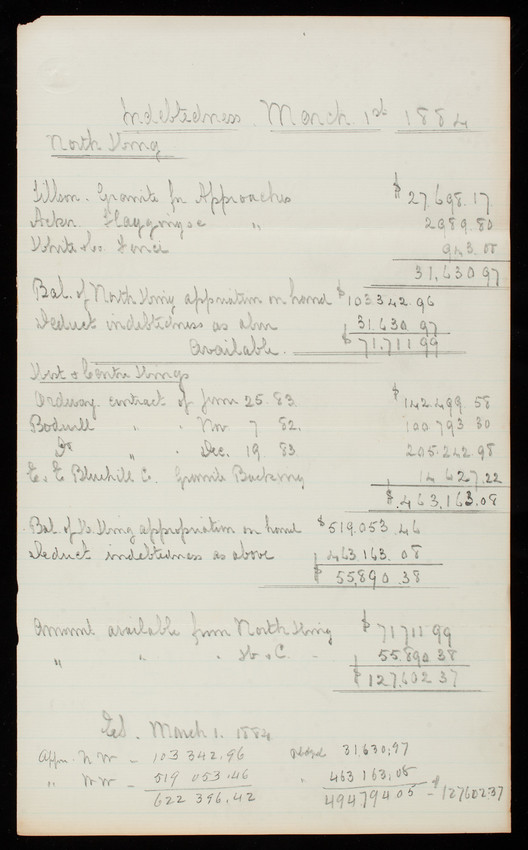 Indebtedness March 1st 1884
North Wing
Tillson. Granite for Approaches $27,698.17
Acker Flagging &c " 2989.80
White & Co. Fence 943.00
31,630 97
Bal. of North Wing appriation on hand $103.342.96
Deduct indebtedness as abov 31,630 97
Available. $71,711 99
West & Centre Wings
Ordway contract of June 25.83. $142.499 58
Bodwell " " Nov 7 82. 100 793 30
Do " " Dec. 19 83 205.242.98
E. E Bluehill C. Granite Backing 14 627.22
$463,163.08
Bal. of W. Wing appropriation on hand $519.053.46
Deduct indebtedness as above 463 163. 08
$55,890.38
Amount available from North Wing $71711 99
" " " W & C. - 55.890 38
$127,602 37
Ed. March 1. 1884
Appn. N W - 103 342.96 31,630.97
" WW - 519 053.46 " 463 163.08
622 396.42 494794 05 - $127602.37